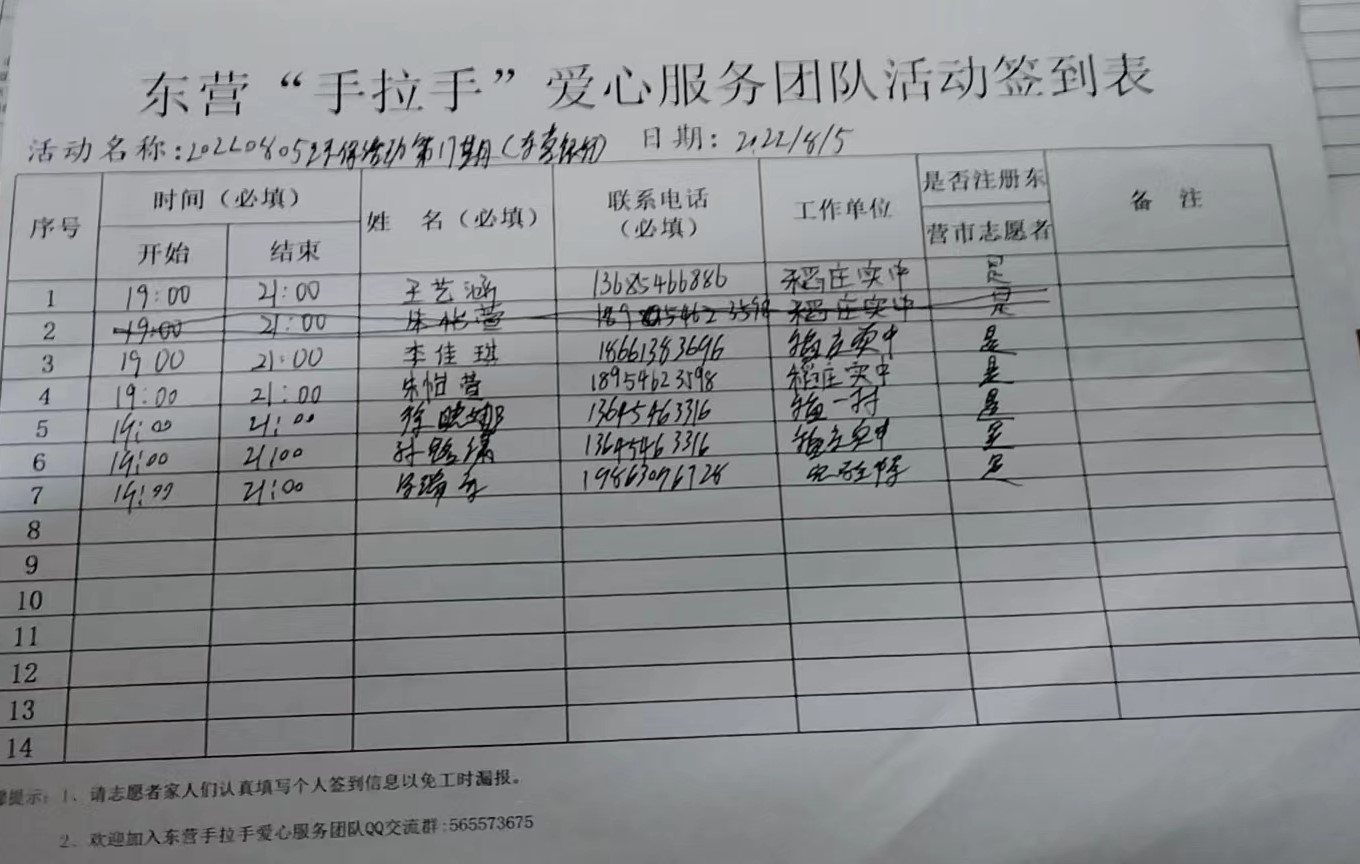 东营“手拉手”爱心服务团队活动签到表
活动名称:20220805环保活动第17期(东营 日期:2022/8/5
序号 时间(必填) 姓 名(必填) 联系电话(必填) 工作单位 是否注册东营市志愿者 备 注
开始 结束
1 19:00 21:00 王艺涵 13685466886 稻庄实中 是
2 19:00 21:00 朱 稻庄实中 是
3 19 00 21:00 李佳琪 18661383696 稻庄实中 是
4 19:00 21:00 朱怡萱 18954623598 稻庄实中 是
5 19:00 21:00 徐晓娜 13645463316 稻一村 是
6 19:00 21:00 13645463316 稻庄实中 是
7 19:00 21:00 19863096728 是
8
9
10
11
12
13
14
提示:1、请志愿者家人们认真填写个人签到信息以免工时漏报。
2、欢迎加入东营手拉手爱心服务团队QQ交流群:565573675